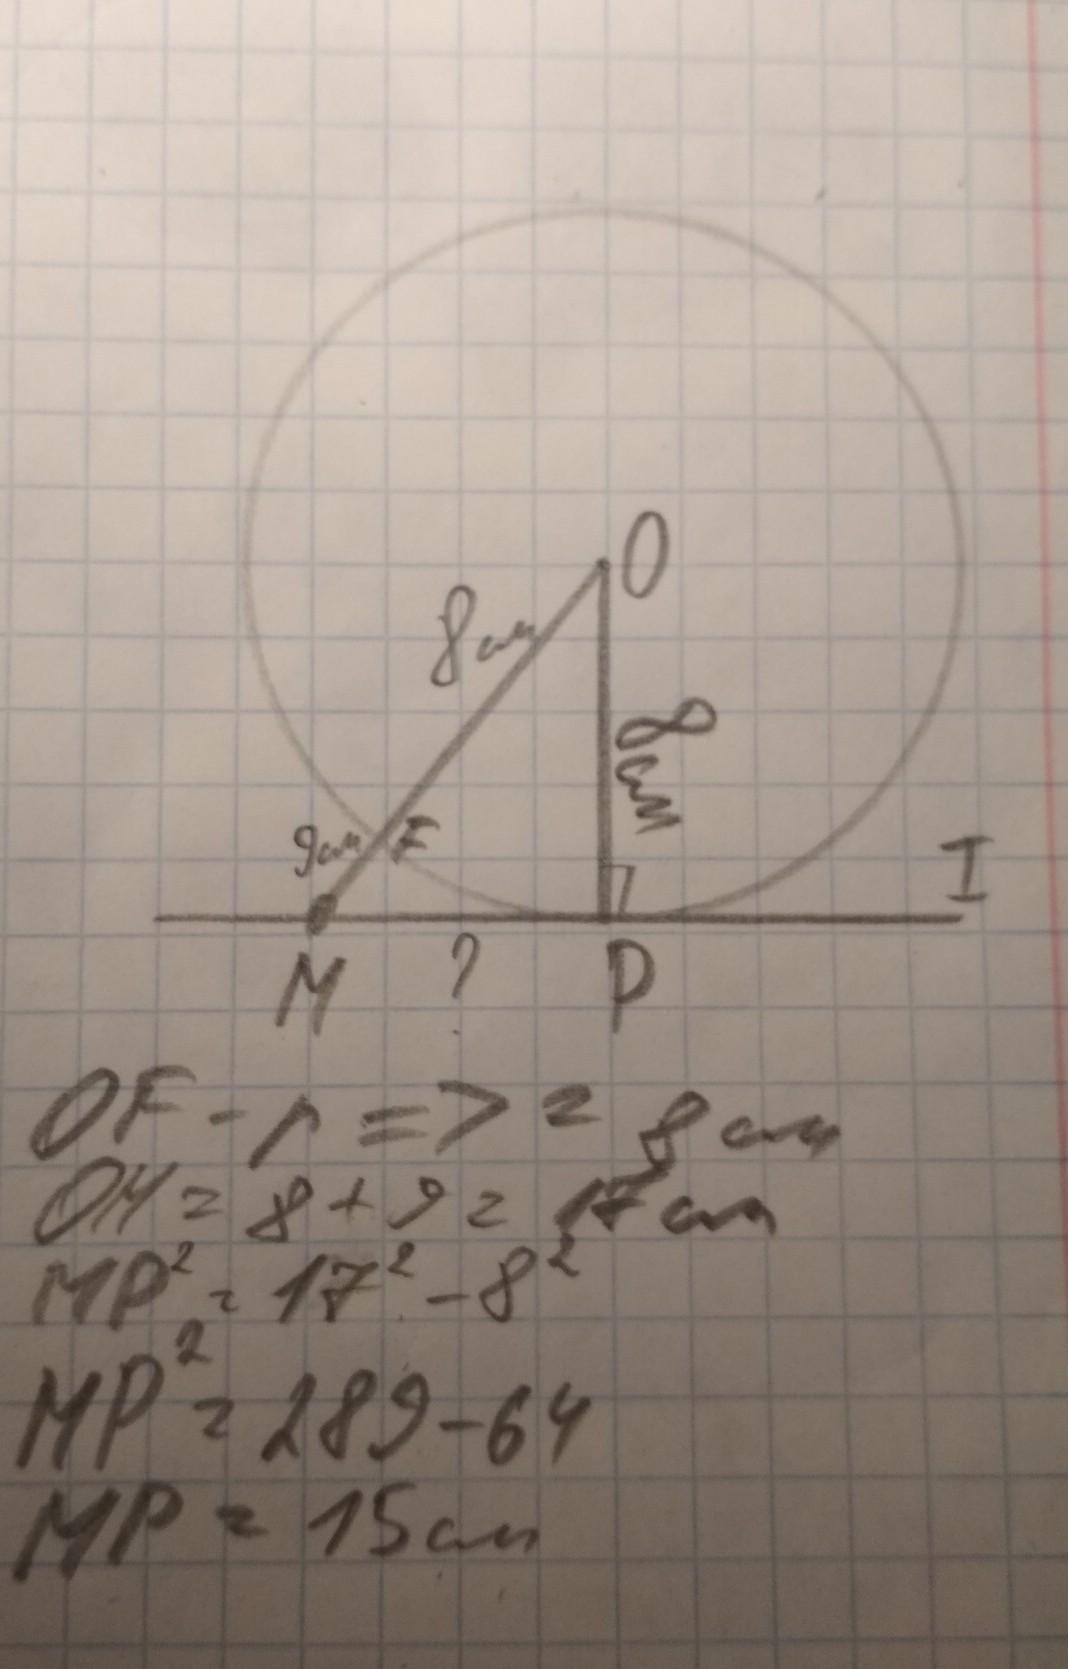 O
8 см
8 см
9 см
F
I
M
?
P
OF - r => = 8 см
OM = 8 + 9 = 17 см
MP² = 17² - 8²
MP² = 289 - 64
MP = 15 см